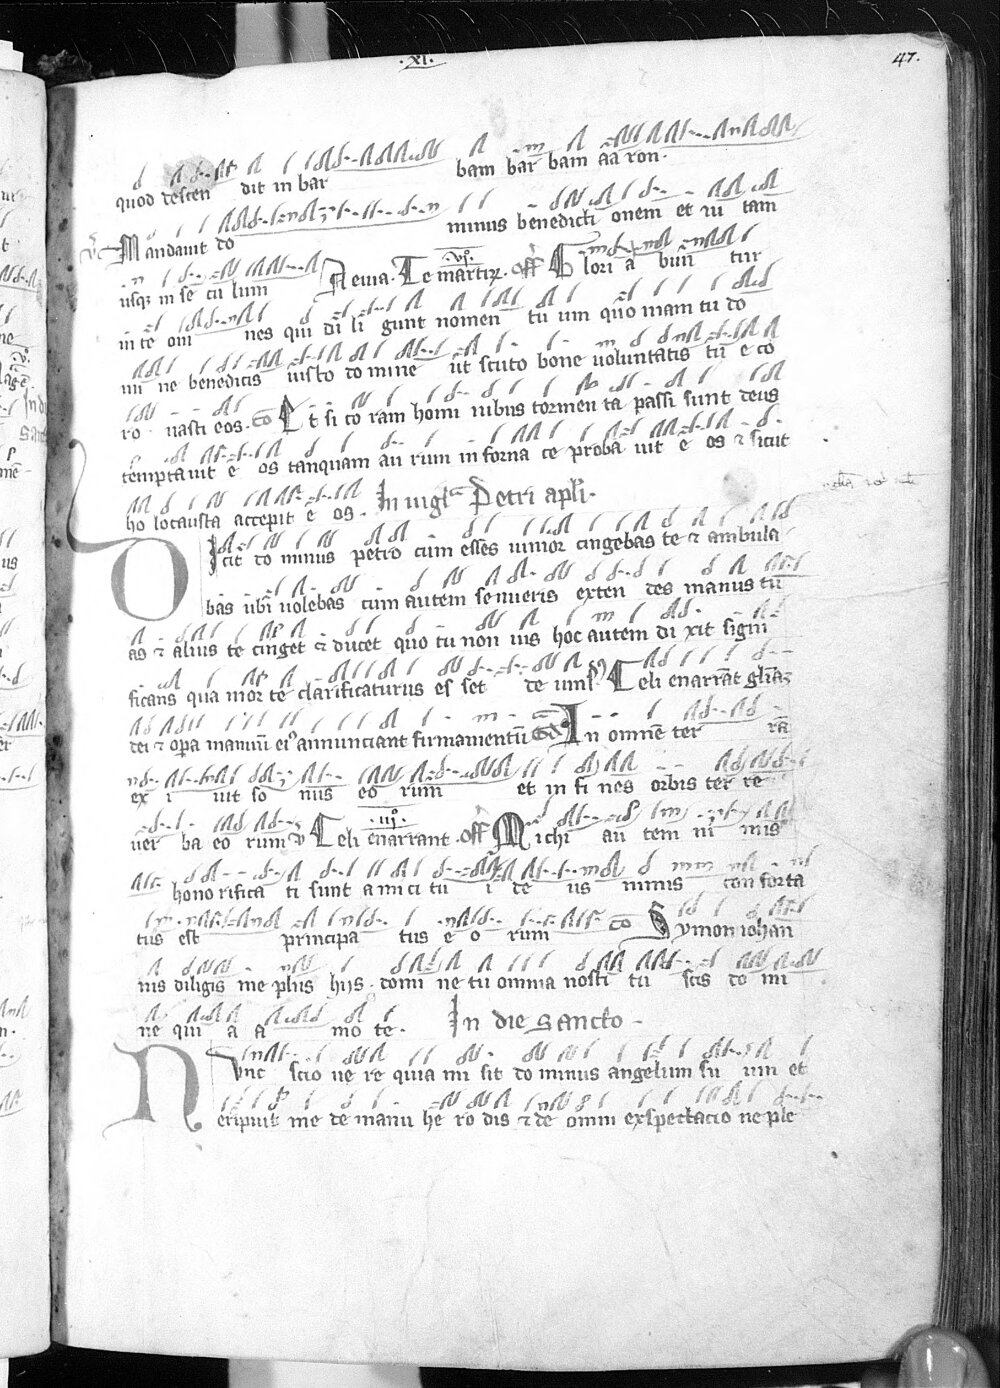 .XI.
47.
quod descen dit in bar bam bar bam aaron.
V Mandavit do minus benedicti onem et in tam
usq; in se cu lum Aeuia. Te martir. .vs. off Glori a bun tur
in te om nes qui di li gunt nomen tu um quoniam tu do
mi ne benedicis iusto domine ut scuto bone voluntatis tue co
ro nasti eos. co Et si coram homi nibus tormen ta passi sunt deus
temptavit e os tanquam au rum in forna ce proba uit e os & sicut
ho locausta accepit e os. In vigla Petri apli.
Dicit do minus petro cum esses iunior cingebas te & ambula
bas ubi volebas cum autem senueris exten des manus tu
as & alius te cinget & ducet quo tu non vis hoc autem di xit signi
ficans qua morte clarificaturus es set deum. ps Celi enarrat gliaz
dei & opa manuu ei9 annunciant firmamentu Gd In omne ter ra
ex i uit so nus eo rum et in fi nes orbis ter re
ver ba eo rum V Celi enarrant. .iij. off Michi au tem ni mis
honorifica ti sunt amici tu i de us nimis conforta
tus est principa tus e o rum co Symon iohan
nis diligis me plus hijs. domi ne tu omnia nosti tu scis do mi
ne qui a a mo te. In die sancto.
Nunc scio ve re quia mi sit dominus angelum su um et
eripuit me de manu he ro dis & de omni exspectacio ne ple